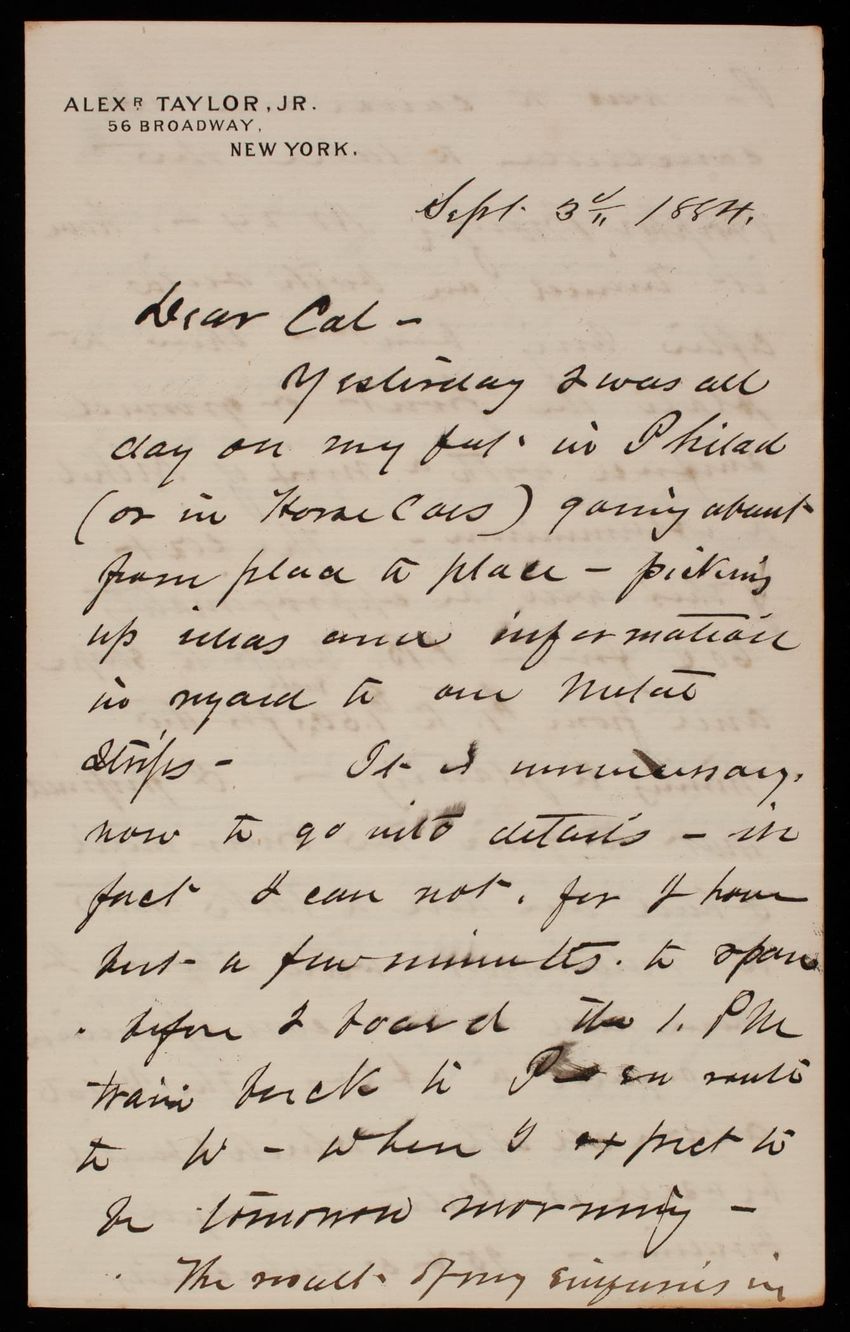 ALEXR TAYLOR, JR.
56 BROADWAY,
NEW YORK.
Sept. 3d/11 1884.
Dear Cal -
Yesterday I was all
day on my feet. in Philad
(or in Horse Cars) going about
from place to place - picking
up ideas and information
in regard to our Metal
Strips - It is unnecessary.
now to go into details - in
fact I can not. for I have
but a few minutes. to spare
before I board the 1. PM
train back to P en route
to W - where I expect to
be tomorrow morning -
The result of my enquiries in